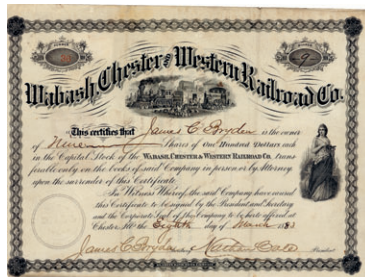 Wabash, Chester and Western Railroad Co.
9
This certifies that James C. Bryden is the owner
of Nine Shares of One Hundred Dollars each
in the Capital Stock of the WABASH, CHESTER & WESTERN RAILROAD CO. trans
ferable only on the books of said Company in person or by Attorney
upon the surrender of this Certificate.
In Witness Whereof, the said Company have caused
this Certificate to be signed by the President and Secretary
and the Corporate Seal of the Company to be hereto affixed at
Chester, Ill. the Eighth day of March
James C. Bryden
President